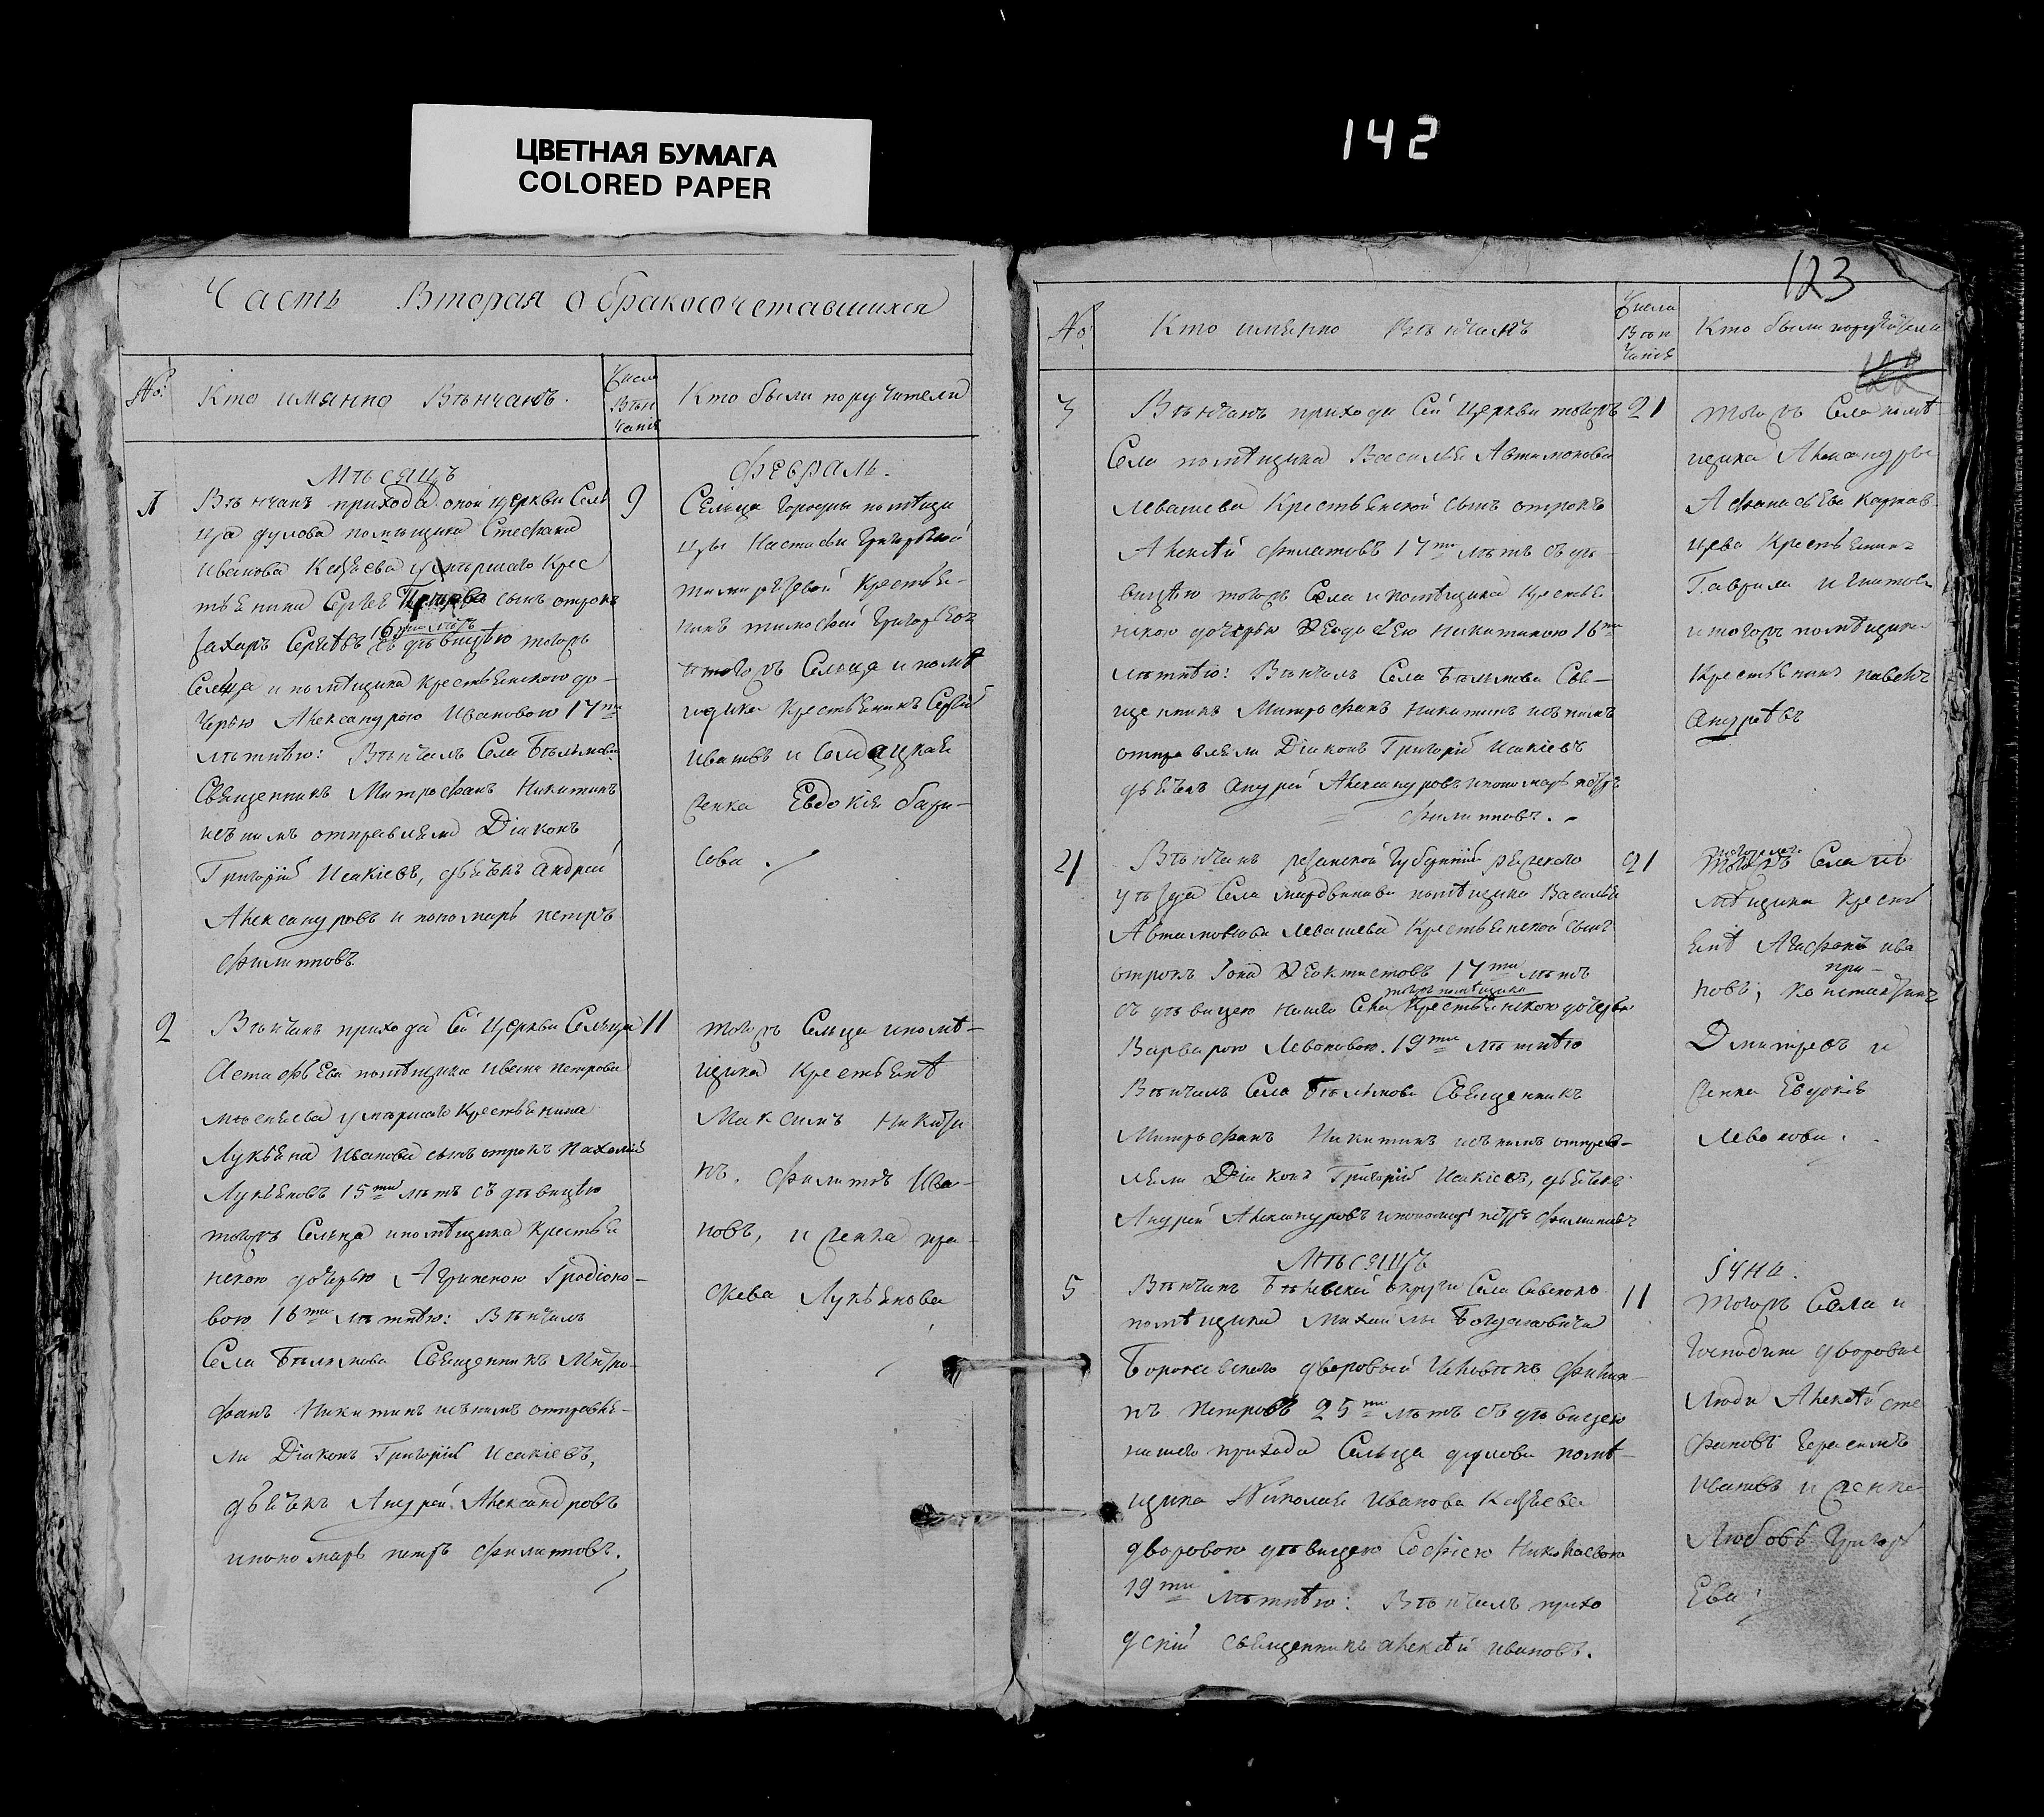 ЦВЕТНАЯ БУМАГА
COLORED PAPER
142
Часть Вторая о бракосочетавшихся
№: Кто имянно Вѣнчанъ. Числа Вѣнчанія Кто были поручители
Мѣсяцъ Февраль.
1 Вѣнчанъ прихода оной церкви Сель 9
ца дулова помѣщика Стефана
Иванова умершаго Крес
тьянина Сергея сынъ отрокъ
Захаръ Сергѣевъ 16ти лѣтъ съ дѣвицею тогожъ
Сельца и помѣщика крестьянскою до-
черью Александрою Ивановою 17ти
лѣтнѣю: Вѣнчалъ Села Бѣлынова
Священникъ Митрофанъ Никитинъ
и съ нимъ отправляли Діаконъ
Григорій Исакіевъ, дьячекъ Андрей
Александровъ и пономарь петръ
Филипповъ.
Сельца помѣщи
цы Настасьи Григорьевой
крестья-
нинъ тимофей Григорьевъ
и тогожъ Сельца и помѣ
щика крестьянинъ Сергей
Ивановъ и Солдацкая
женка Евдокия бари-
сова.
2 Вѣнчанъ прихода Сей Церкви Сельца 11
Астафьева помѣщика ивана петрова
умершаго Крестьянина
Лукьяна Иванова сынъ отрокъ Пахомий
Лукьяновъ 15ти лѣтъ съ дѣвицѣю
тогожъ Сельца и помѣщика крестья
нскою дочерью Агрипеною Іродіоно-
вою 16ти лѣтнѣю: Вѣнчалъ
Села Бѣлынова Священникъ Митро-
фанъ Никитинъ и съ нимъ отправля-
ли Діаконъ Григорій Исакіевъ,
дьячекъ Андрей Александровъ
и пономарь петръ Филипповъ.
тогожъ Сельца и помѣ-
щика крестьянѣ
Максимъ Никити
нъ, Филиппъ Ива-
новъ, и женка пра-
сковя Лукьянова
123
№: Кто имянно Вѣнчанъ Числа Вѣнчанія Кто были поручители
3 Вѣнчанъ прихода Сей Церкви тогожъ 21
Села помѣщика Василья Автамонова
Левашева Крестьянской сынъ отрокъ
Алексѣй Филатовъ 17ти лѣтъ съ дѣ-
вицѣю тогожъ Села и помѣщика крестья
нскою дочерью Ѳеодосею Никитиною 16ти
лѣтнѣю: Вѣнчалъ Села Бѣлынова Свя-
щенникъ Митрофанъ Никитинъ и съ нимъ
отправляли Діаконъ Григорій Исакіевъ
дьячекъ Андрей Александровъ и пономарь петръ
Филипповъ.
тогожъ Села помѣ-
щика Александра
Афанасьева
крестьянинъ
Гаврила Никитовъ
и тогожъ помѣщика
крестьянинъ павелъ
Андреѣвъ
4 Вѣнчанъ резанской Губерніи ряжскаго 21
уѣзда Села мардвинова помѣщика Василья
Автамонова Левашева Крестьянской сынъ
отрокъ Іона Ѳеоктистовъ 17ти лѣтъ
тогожъ помѣщика
съ дѣвицею нашего Села крестьянскою дочерью
Варварою Левоновою. 19ти лѣтнѣю
Вѣнчалъ Села Бѣлынова Священникъ
Митрофанъ Никитинъ и съ нимъ отправ-
ляли Діаконъ Григорій Исакіевъ, дьячекъ
Андрей Александровъ и пономарь петръ Филиповъ
тогожъ Села по
мѣщика крестья
янѣ Агафонъ ива
новъ, констанътинъ
Дмитревъ и
женка Евдокия
Левонова.
Мѣсяцъ Іуна.
5 Вѣнчанъ округи Села 11
помѣщика Михаилы Богдановича
дворовый человѣкъ Филип-
пъ Петровъ 25ти лѣтъ съ дѣвицею
нашего прихода Сельца дулова помѣ-
щика Николая Иванова
дворовою дѣвицею Софіею Николаевою
19ти лѣтнѣю: Вѣнчалъ прихо
дскій священникъ алексѣй ивановъ.
тогожъ Села и
Господина дворовые
люди Алексѣй сте
фановъ Герасимъ
Ивановъ и женка
Любовь Григорь
Ева